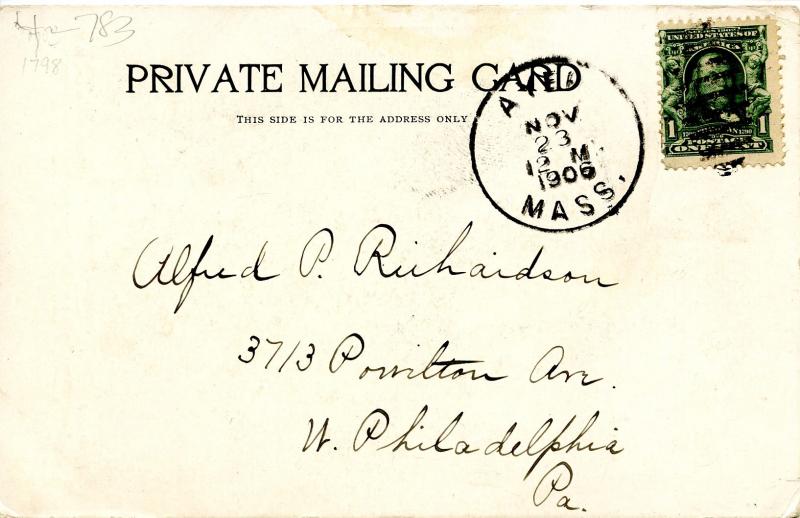 783
1798
PRIVATE MAILING CARD
THIS SIDE IS FOR THE ADDRESS ONLY
NOV
23
12 M
1906
MASS.
UNITED STATES OF
AMERICA
1 1
POSTAGE
ONE CENT
Alfred P. Richardson
3713 Powilton Ave.
W. Philadelphia
Pa.